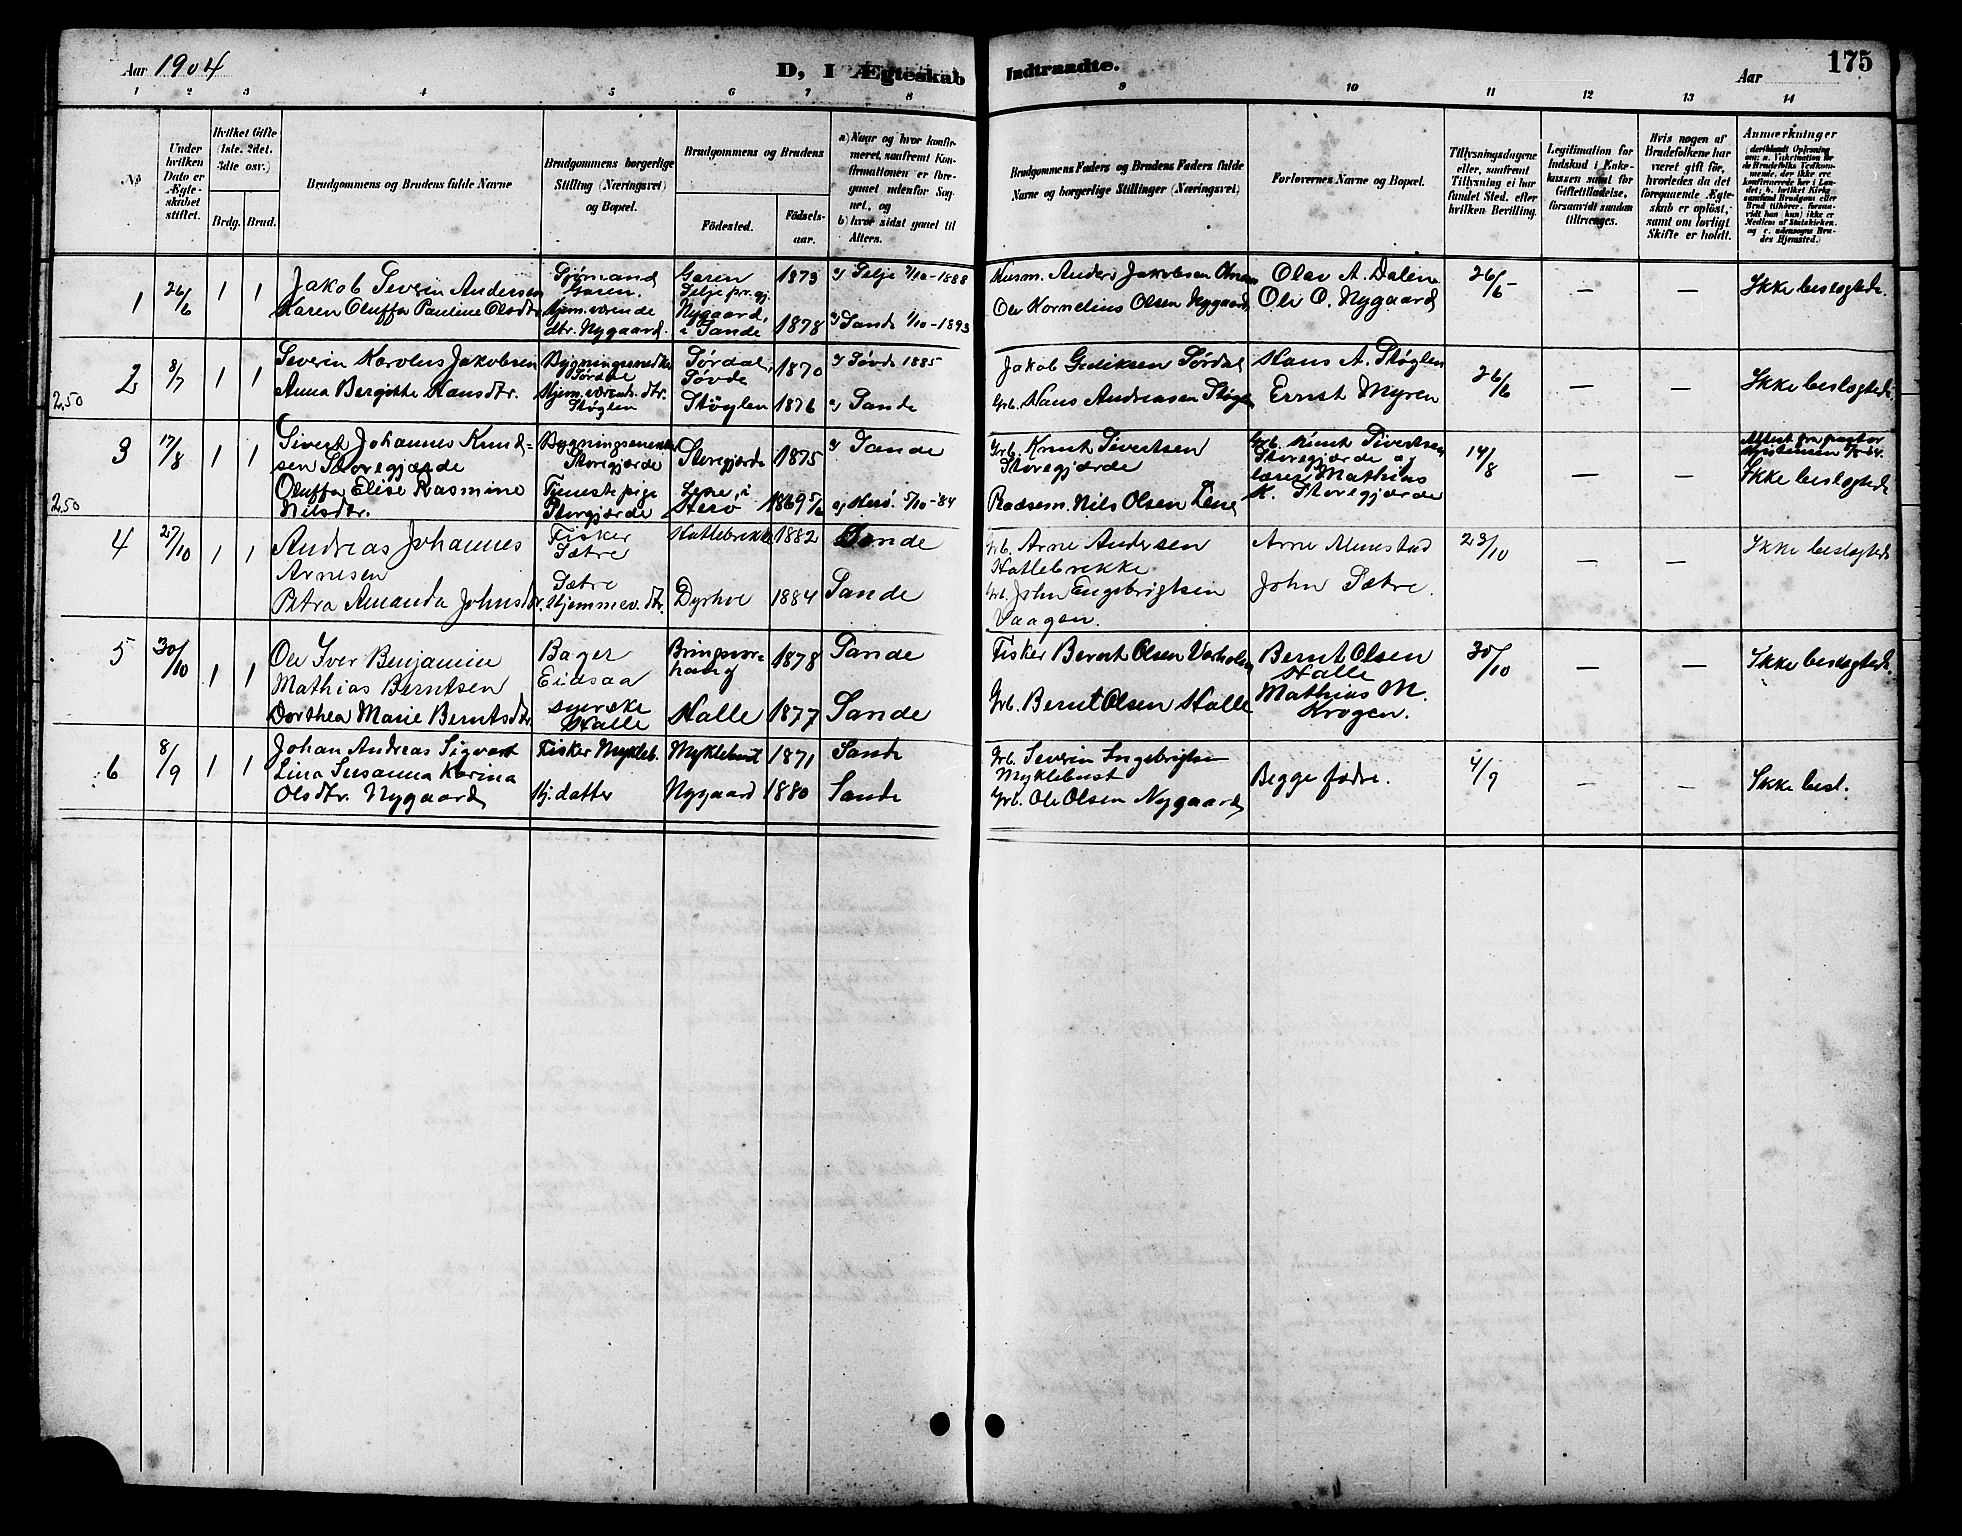 Aar 1904
D, I Ægteskab Indtraadte.
Aar
175
1 2 3 4 5 6 7 8 9 10 11 12 13 14
No
Under
hvilken
Dato er
Ægte-
skabet
stiftet.
Hvilket Gifte
(1ste. 2det.
3die osv.)
Brdg. Brud.
Brudgommens og Brudens fulde Navne
Brudgommens borgerlige
Stilling (Næringsvei)
og Bopæl.
Brudgommens og Brudens
Fødested.
Fødsels-
aar.
a) Naar og hvor konfir-
meret, samfremt Kon-
firmationen er fore-
gaaet udenfor Sog-
net, og
b) hvor sidst gaaet til
Alters.
Brudgommens Faders og Brudens Faders fulde
Navne og borgerlige Stillinger (Næringsvei)
Forlovernes Navne og Bopæl.
Tillysningsdagene
eller, samfremt
Tillysning ei har
fundet Sted, efter
hvilken Bevilling.
Legitimation for
Indskud i Enke-
kassen samt for
Giftetilladelse,
forsaavidt saadan
tiltrænges.
Hvis nogen af
Brudefolkene har
været gift før,
hvorledes da det
foregaaende Ægte-
skab er opløst,
samt om lovligt
Skifte er holdt.
Anmærkninger
(deriblandt Oplysning
om: a. Vakcination for
de Brudefolks Vedkom-
mende, der ikke ere
konfirmerede her i Lan-
det; b. hvilket Kirke-
samfund Brudgom eller
Brud tilhører, forsaa-
vidt han (hun) ikke er
Medlem af Statskirken,
og c. udensogns Bru-
des Hjemsted.)
1 26/6 1 1
Jakob Severin Andersen
Karen Oluffa Pauline Olsdtr
Sømand
Garen.
Hjem.værende
dtr. Nygaard.
Garen
Selje pr.gj.
Nygaard,
i Sande
1873
1878
a) Selje 7/10-1888
a) Sande 1/10-1893
Husm. Anders Jakobsen
Ole Kornelius Olsen Nygaard,
Olav A. Dalen
Ole O. Nygaard
26/6 - — —
Ikke beslægtede.
2 8/7 1 1
2,50
Severin Karolus Jakobsen
Anna Bergitte Hansdtr.
Bygningssnedker
Sørdal
Hjem.værende. dtr.
Støylen
Sørdal,
Søvde
Støylen
1870
1876
a) Søvde 1885
a) Sande
Jakob Gudiksen Sørdal
Grb. Hans Andreasen
Hans A. Støylen
Ernst Myren
26/6 — —
Ikke beslægtede
3 17/8 1 1
2,50
Sivert Johannes Knud-
sen Storegjærde
Oluffa Elise Rasmine
Nilsdtr.
Storegjærde
Tjenestepige
Storegjærde
Storegjærde
Lene, i
Herø
1875
1869 5/6
a) Sande
a) Herø. 5/10-84
Grb. Knut Sivertsen
Storegjærde
Radsem. Nils Olsen Lene
Grb. Knut Sivertsen
Storegjærde og
læser Mathias
K. Storegjærde
14/8 — —
Attest fra pastor
Ikke beslægtede
4 27/10 1 1
Andreas Johannes
Arnesen
Petra Amanda Johnsdtr.
Fisker
Sætre
Sætre
Hjemmev. dtr.
Hatlebrekke
Dyrhol
1882
1884
Sande
Sande
Grb. Arne Andersen
Hatlebrekke
Grb. John Engebrigtsen
Vaagen.
Arne Almestad
John Sætre.
23/10 — —
Ikke beslægtede
5 30/10 1 1
Ole Iver Benjamin
Mathias Berntsen
Dorthea Marie Berntsdtr
Bager
Eidsaa
Halle
Bringsvor-
haug
Halle
1878
1877
Sande
Sande
Fisker Bernt Olsen
Grb. Bernt Olsen Halle
Bernt Olsen
Halle
Mathias M.
Krogen.
30/10 — —
Ikke beslægtede.
6 8/9 1 1
Johan Andreas Sigvart
Lina Susanna Karina
Olsdtr. Nygaard
Fisker Mykleb.
Hj.datter
Myklebust
Nygaard
1871
1880
Sande
Sande
Grb. Severin Ingebrigtsen
Myklebust
Grb. Ole Olsen Nygaard,
Begge fædre.
4/9 — —
Ikke besl.